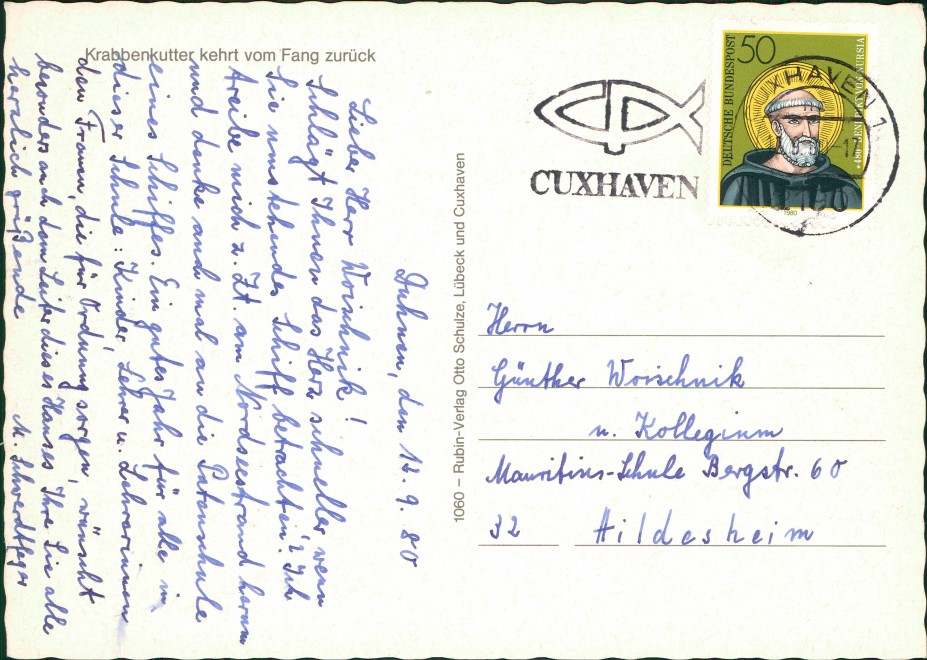 Krabbenkutter kehrt vom Fang zurück
Duhnen, den 12. 9. 80
Lieber Herr Woischnik!
Schlägt Ihnen das Herz schneller wenn
Sie umstehendes Schiff betrachten? Ich
treibe mich z. Zt. am Nordseestrand herum
und denke auch mal an die Patenschule
eines Schiffes. Ein gutes Jahr für alle in
dieser Schule: Kinder, Lehrer u. Lehrerinnen
den Frauen, die für Ordnung sorgen, wünscht
besonders auch dem Leiter dieses Hauses Ihre Sie alle
herzlich grüßende M. Schwerdtfeger
1060 – Rubin-Verlag Otto Schulze, Lübeck und Cuxhaven
CUXHAVEN
CUXHAVEN 1
DEUTSCHE BUNDESPOST
50
1980
Herrn
Günther Woischnik
u. Kollegium
Mauritius-Schule Bergstr. 60
32 Hildesheim